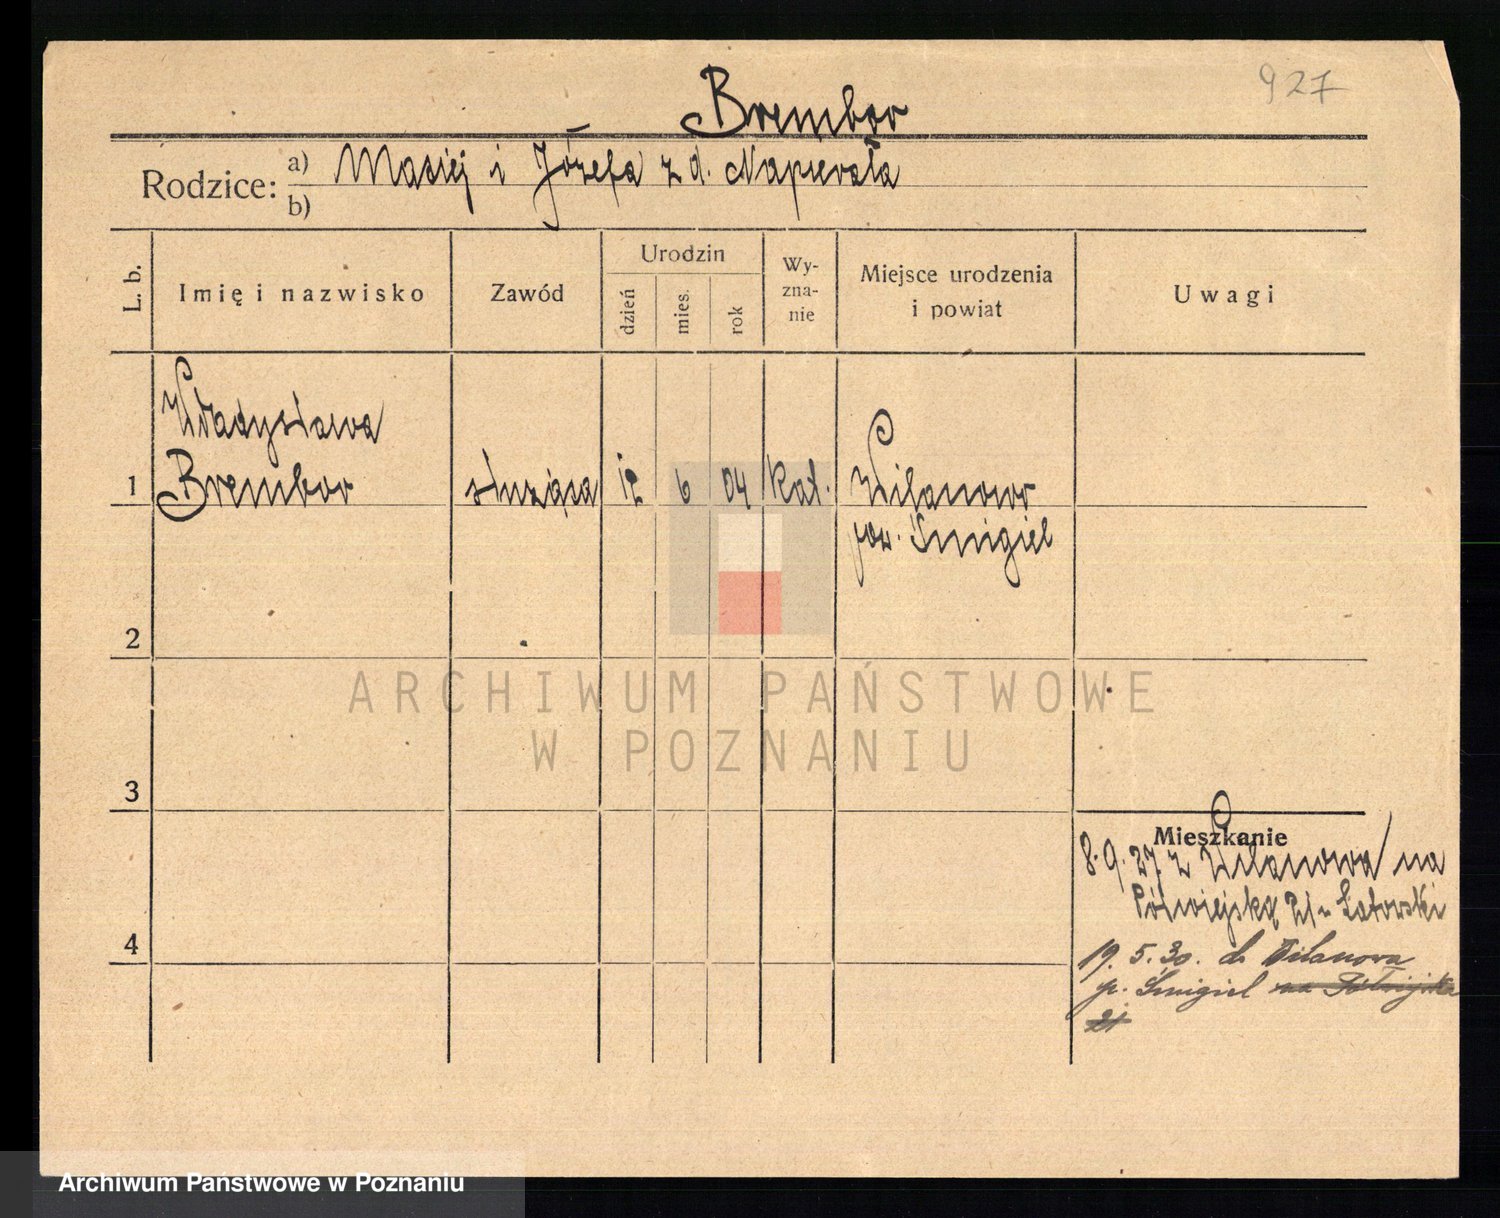 927
Brembor
Rodzice: a) Maciej i Józefa z d. Napierała
b)
L. b. Imię i nazwisko Zawód Urodzin dzień mies. rok Wy-zna-nie Miejsce urodzenia i powiat Uwagi
Władysława
1 Brembor służąca 12 6 04 kat. Wilanowo
pow. Śmigiel
2
ARCHIWUM PAŃSTWOWE
W POZNANIU
3
Mieszkanie
8.9.27 z Wilanowa na
Półwiejską 21 Latowski
4
19.5.30. do Wilanowa
p. Śmigiel na Półwiejska
21
Archiwum Państwowe w Poznaniu